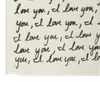 love you, I love you,
you, I love you, I love
I love you, I love you,
love you, I love you
you, I love you, I love